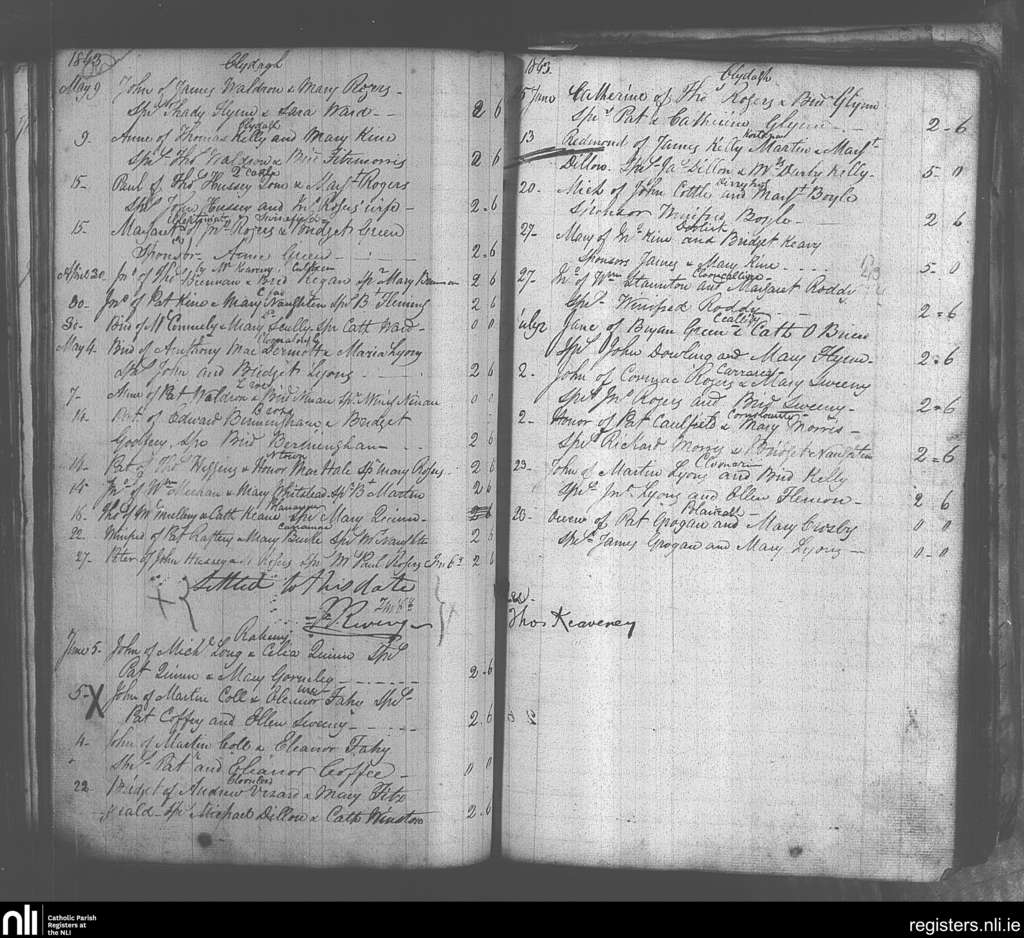 1843
Clydagh
May 9 John of James Waldron & Mary Rogers -
Sps Thady Flynn & Sara Ward - - 2 6
Clydagh
9. Anne of Thomas Kelly and Mary Kine
Sps Thos Waldron & Brid Fitzmorris 2 6
15- Paul of Thos Hussey & Margt Rogers
Sps John Hussey and Jns Rogers wife - 2-6
15- Margaret of Jno Rogers & Bridget Green
Sponsor - Anne Green - - - 2-6
April 30 Jno of Thos Brennan & Brid Regan Spr Mary Brennan 2 6
30- Jno of Pat Kine & Mary Naughten Spr B Fleming 2 6
30- Brid of Connely & Mary Scully Spr Cath Ward - 0 0
May 4. Brid of Anthony Mac Dermott & Maria Lyons
Sps John and Bridget Lyons - - - 2 6
7- Anne of Pat Waldron & Brid Ninan Spr Winid Ninan 0 0
14. Pat of Edward Birmingham & Bridget
Godfrey, Spr Brid Bermingham - 2 6
14- Pat of Thos Higgins & Honor Mac Hale Sp Mary Rogers 2 6
15 Jno of Wm Meehan & Mary Whitehead Spr B Martin 2 6
Thos of Mullany & Cath Keane Spr Mary Quinn - 2 6
22. Winifred of Pat Raftery & Mary Burke Spr 2 6
27- Peter of John Hussey & Rogers Spr Paul Rogers 2 6
Settled to this date
June 5- John of Michl Long & Celia Quinn Sps
Pat Quinn & Mary Gormley - - - 2-6
5- X John of Martin Coll & Eleanor Fahy Sps
Pat Coffey and Ellen Sweeny - - - 2-6
4- John of Martin Coll & Eleanor Fahy
Sps Pat and Eleanor Coffee - 0 0
22 Bridget of Andrew & Mary Fitz
gerald - Sps Michael Dillon & Cath Winston 2-6
1843.
Clydagh
June Catherine of Thos Rogers & Brid Glynn
Sps Pat & Catherine Glynn - - - 2-6
13 Redmond of James Kelly Martin & Margt
Dillon. Sps Jas Dillon & Mrs Derby Kelly - 5-0
20. Mick of John Cottle and Margt Boyle
Sponsor Winifred Boyle - 2 6
27- Mary of Jno Kine and Bridget Keavy
Sponsors James & Mary Kine - - - 5-0
27- Jno of Wm Staunton and Margaret Roddy
Sps- Winifred Roddy 2-6
July 2 Jane of Bryan Green & Cath O Brien
Sps John Dowling and Mary Flynn - 2-6
2. John of Cormac Rogers & Mary Sweeny
Sps Jno Rogers and Brid Sweeny - 2-6
2- Honor of Pat Caulfield & Mary Morris -
Sps Rickard Morris & Bridget Naughten 2-6
Cloonan
23. John of Martin Lyons and Brid Kelly
Sps Jno Lyons and Ellen - 2 6
23- Owen of Pat Grogan and Mary Crosby 0 0
Sps James Grogan and Mary Lyons - 0-0
Thos Keaveney
nli
Catholic Parish
Registers at
the NLI
registers.nli.ie